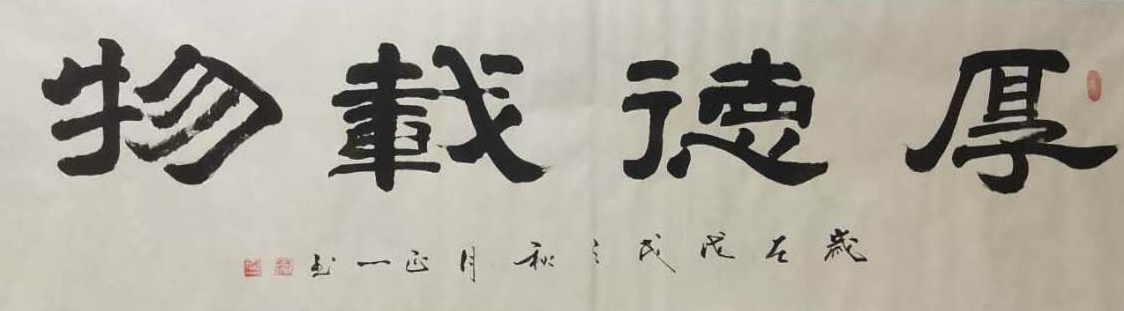 厚德載物
歲在戊戌之秋月正一書